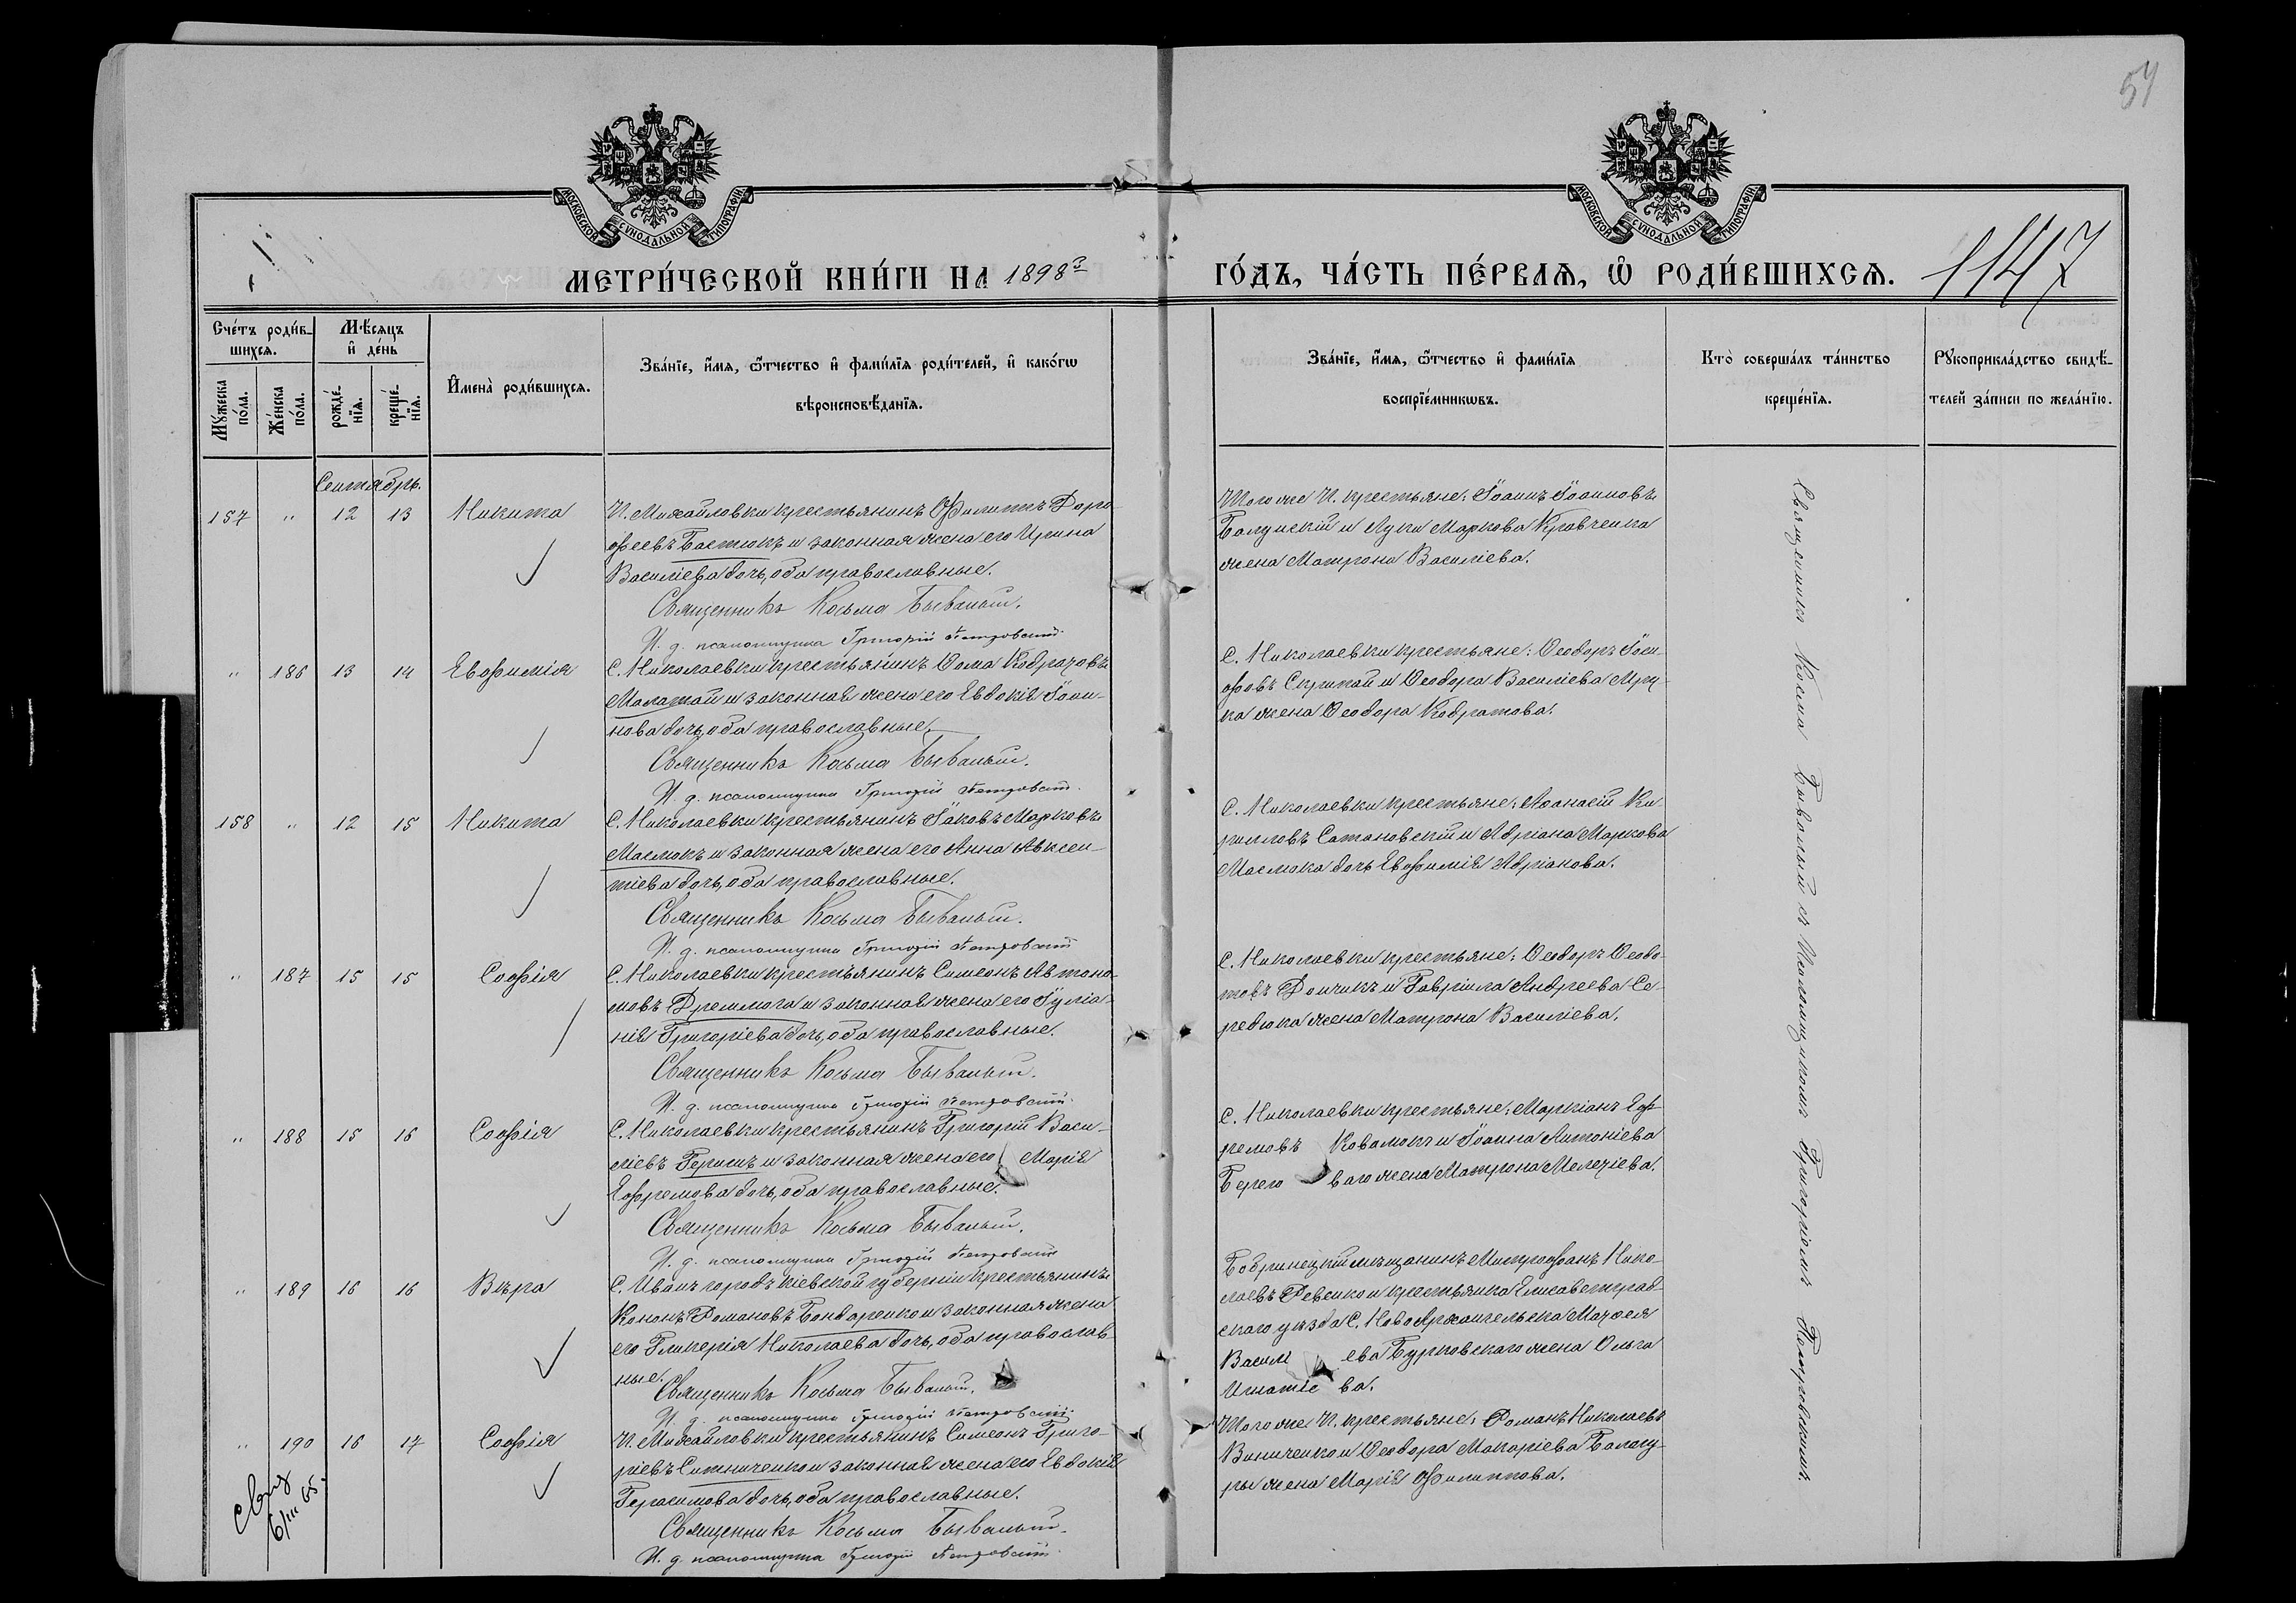 54
МОСКОВСКОЙ СУНОДАЛЬНОЙ ТИПОГРАФІИ
МОСКОВСКОЙ СУНОДАЛЬНОЙ ТИПОГРАФІИ
МЕТРИ́ЧЕСКОЙ КНИ́ГИ НА 1898й
ГО́ДЪ, ЧА́СТЬ ПЕ́РВАѦ, Ѡ҆ РОДИ́ВШИХСѦ.
1147
Сче́тъ роди́в-
шихсѧ.
Мѣ́сѧцъ
и҆ де́нь
Мꙋ́жеска
по́ла.
Же́нска
по́ла.
рожде́-
нїѧ.
креще́-
нїѧ.
И҆мена̀ роди́вшихсѧ.
Зва́нїе, и҆́мѧ, ѻ҆́тчество и҆ фами́лїѧ роди́телей, и҆ како́гѡ
вѣроисповѣ́данїѧ.
Зва́нїе, и҆́мѧ, ѻ҆́тчество и҆ фами́лїѧ
воспрїе́мникѡвъ.
Кто̀ соверша́лъ та́инство
креще́нїѧ.
Рꙋкоприкла́дство свидѣ́-
телей за́писи по жела́нїю.
Сентябрь.
157 " 12 13 Никита
П. Михайловки крестьянинъ Филиппъ Доро-
феевъ Бастюкъ и законная жена его Ирина
Василіева дочь, оба православные.
Священникъ Косьма Бывалый.
И. д. псаломщика Григорій Петровскій.
Того же П. крестьяне: Іоаннъ Іоанновъ
и Луки Маркова Кравченка
жена Матрона Василіева.
" 186 13 14 Евфимія
С. Николаевки крестьянинъ Ѳома Кодратовъ
Малатай и законная жена его Евдокія Іоан-
нова дочь, оба православные.
Священникъ Косьма Бывалый.
И. д. псаломщика Григорій Петровскій.
С. Николаевки крестьяне: Ѳеодоръ Іоси-
фовъ Скрипай и Ѳеодора Василіева
жена Ѳеодора Кодратова.
158 " 12 15 Никита
С. Николаевки крестьянинъ Іаковъ Марковъ
Маслюкъ и законная жена его Анна Авксен-
тіева дочь, оба православные.
Священникъ Косьма Бывалый.
И. д. псаломщика Григорій Петровскій
С. Николаевки крестьяне: Аѳанасій Ки-
рилловъ Сатановскій и Адріана Маркова
Маслюка дочь Евфимія Адріанова.
" 187 15 15 Софія
С. Николаевки крестьянинъ Симеонъ Автоно-
мовъ Дремлюга и законная жена его Іуліа-
нія Григоріева дочь, оба православные.
Священникъ Косьма Бывалый.
И. д. псаломщика Григорій Петровскій.
С. Николаевки крестьяне: Ѳеодоръ Ѳеодо-
товъ Дончикъ и Гавріила Андреева Се-
редюка жена Матрона Василіева.
" 188 15 16 Софія
С. Николаевки крестьянинъ Григорій Васи-
ліевъ и законная жена его Марія
Ефремова дочь, оба православные.
Священникъ Косьма Бывалый.
И. д. псаломщика Григорій Петровскій
С. Николаевки крестьяне: Маркіанъ Еф-
ремовъ Ковалюкъ и Іоанна Антоніева
Берего ваго жена Матрона Мелетіева.
" 189 16 16 Вѣра
С. Иванъ городъ Кіевской губерніи крестьянинъ
Кононъ Романовъ Бондаренко и законная жена
его Гликерія Николаева дочь, оба православ-
ные.
Священникъ Косьма Бывалый.
И. д. псаломщика Григорій Петровскій.
Бобринецкій мѣщанинъ Митрофанъ Нико-
лаевъ Ревенко и крестьянка Елисаветград-
скаго уѣзда С. НовоАрхангельска Моѵсея
Васил ева Бурковскаго жена Ольга
Игнатіе ва.
" 190 16 17 Софія
П. Михайловки крестьянинъ Симеонъ Григо-
ріевъ Ситниченко и законная жена его Евдокія
Герасимова дочь, оба православные.
Священникъ Косьма Бывалый.
И. д. псаломщика Григорій Петровскій.
Того же П. крестьяне: Романъ Николаевъ
Винниченко и Ѳеодора Макаріева Балагу-
ры жена Марія Филиппова.
Священникъ Косма Бывалый съ Псаломщикомъ Григоріемъ Петровскимъ.
6/III 65.